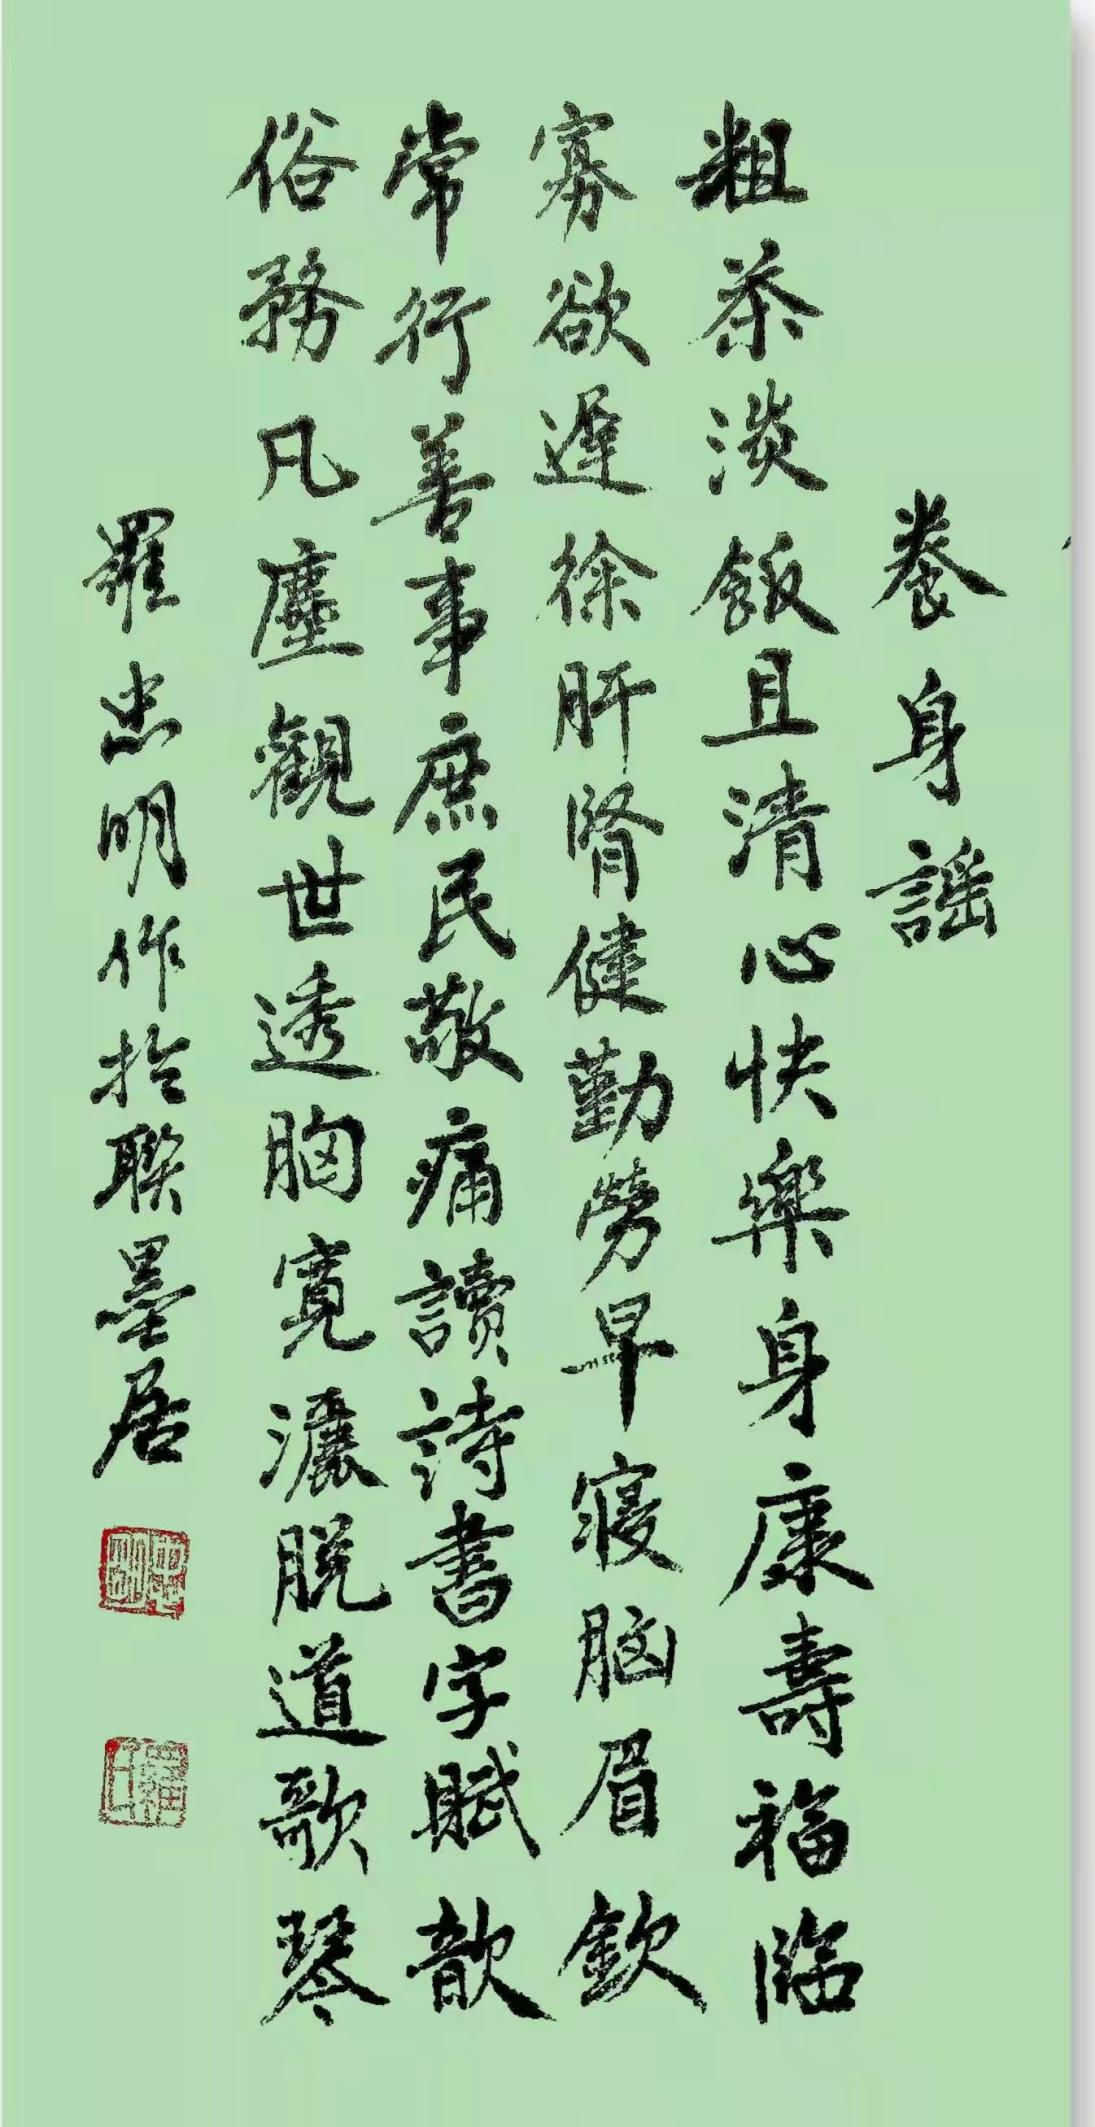 養身謠
粗茶淡飯且清心快樂身康壽福臨
寡欲遲徐肝腎健勤勞早寢脑眉欽
常行善事庶民敬痛讀詩書字賦歆
俗務凡塵觀世透胸寬灑脫道歌琴
羅忠明作於聯墨居